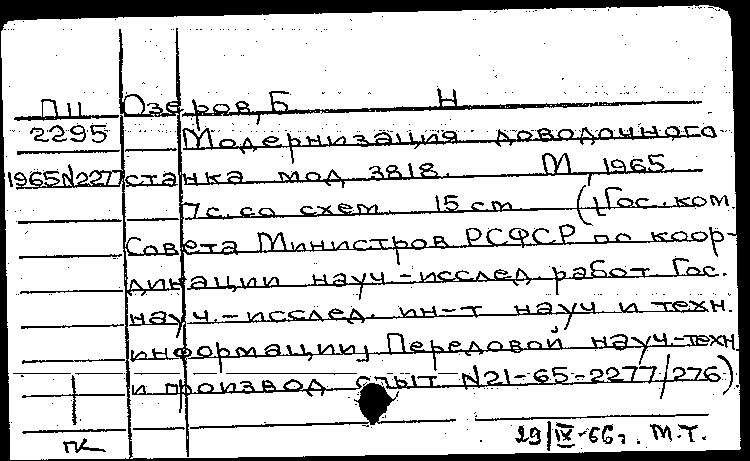 П11 Озеров, Б Н
2295 Модернизация доводочного
1965N2277 станка мод 3818. М, 1965.
7 с. со схем 15 см ([Гос. ком.
Совета Министров РСФСР по коор-
динации науч-исслед. работ Гос.
науч.-исслед. ин-т науч и техн.
информации, Передовой науч-техн
и производ опыт N21-65-2277/276)
ГК 29/IX-66г. М.Т.